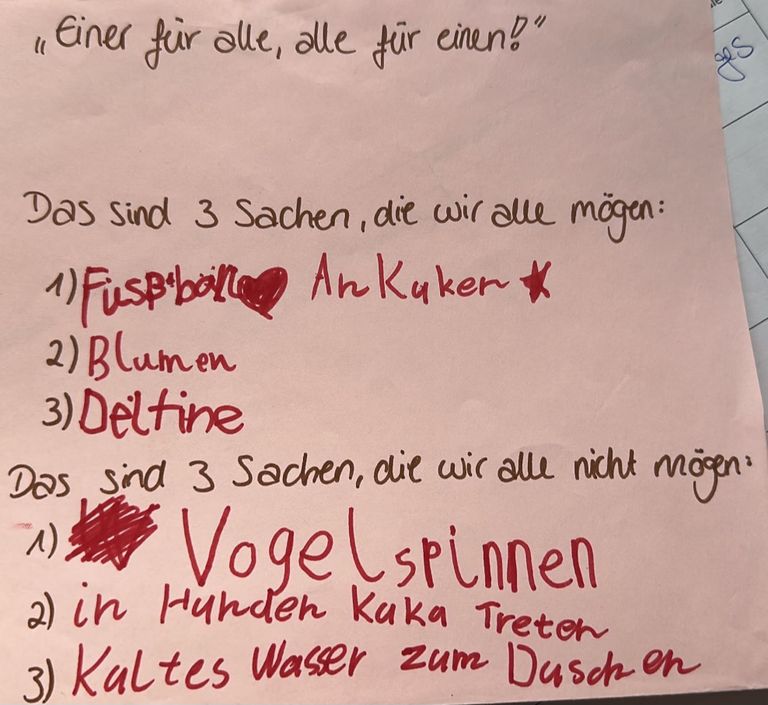 „Einer für alle, alle für einen!“
Das sind 3 Sachen, die wir alle mögen:
1) An Kuken
2) Blumen
3) Delfine
Das sind 3 Sachen, die wir alle nicht mögen:
1) Vogelspinnen
2) in Hunden Kaka Treten
3) Kaltes Wasser zum Duschen